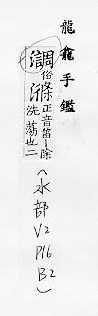 龍龕手鑑
俗滌正音笛丨除
洗蕩也二
(水部
V2
P16
B2)